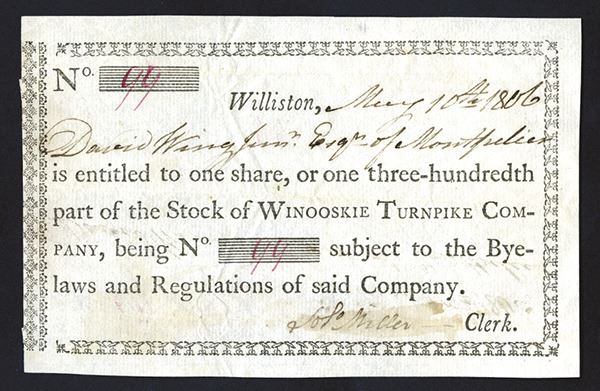 No. 99
Williston, May 10th 1806
David Wing Junr. Esqr. of Montpelier
is entitled to one share, or one three-hundredth
part of the Stock of WINOOSKIE TURNPIKE COM-
PANY, being No. 99 subject to the Bye-
laws and Regulations of said Company.
Sol. Miller Clerk.